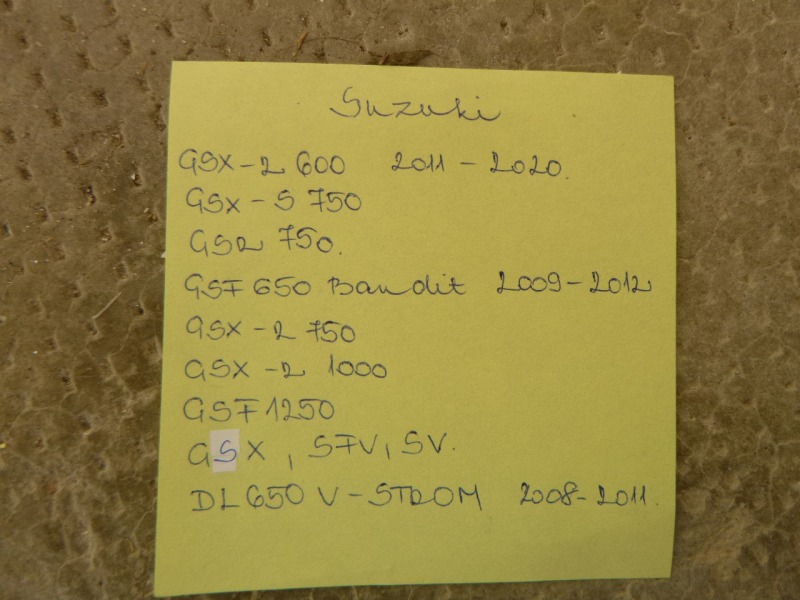 Suzuki
GSX-R 600 2011-2020.
GSX-S 750
GSR 750.
GSF 650 Bandit 2009-2012
GSX-R 750
GSX-R 1000
GSF 1250
GSX, SFV, SV.
DL 650 V-STROM 2008-2011.